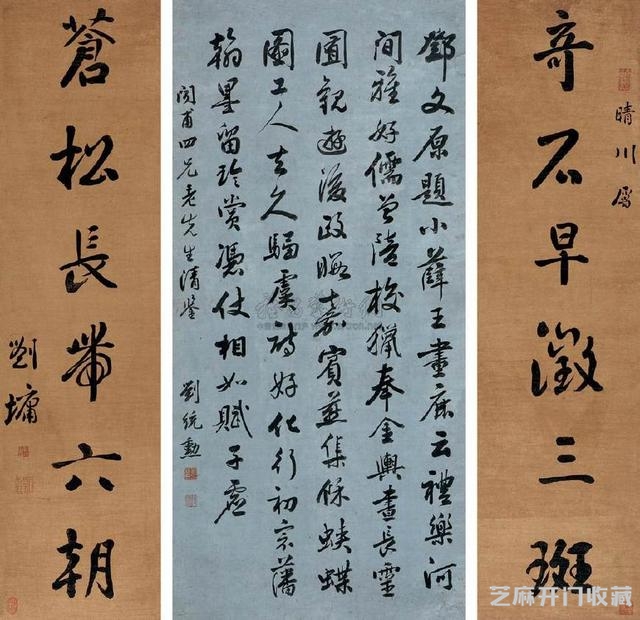 竒石早徵三斑
晴川屬
鄧文原題小薛王畫鹿云禮樂河
間雅好儒曾陪校獵奉金輿晝長靈
囿觀遊後政暇嘉賓燕集餘蛺蝶
圖工人去久騶虞詩好化行初宗藩
翰墨留珍賞憑仗相如賦子虛
甫四兄老先生清鑒
劉統勳
蒼松長帶六朝
劉墉
芝麻开门收藏